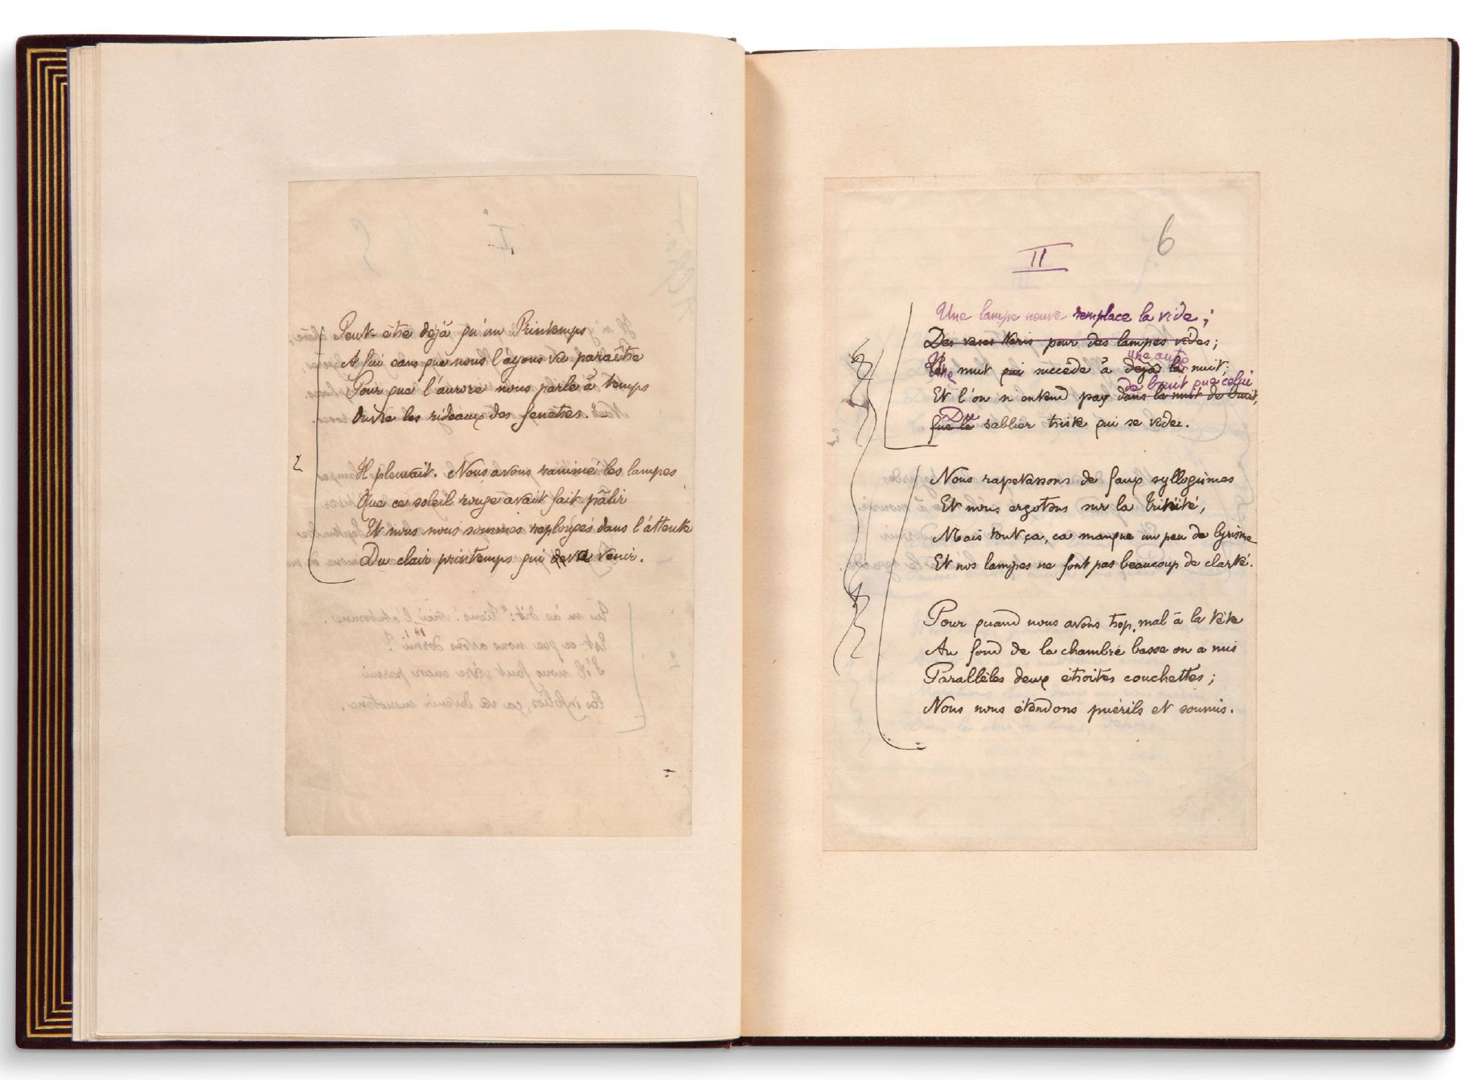 Peut être déjà qu'un Printemps
A lui sans que nous l'ayons vu paraître
Pour que l'aurore nous parle à temps
Outre les rideaux des fenêtres.
2
Il pleuvait. Nous avons ranimé les lampes
Que ce soleil rouge avait fait pâlir
Et nous nous sommes replongés dans l'attente
Du clair printemps qui va venir.
6
II
Une lampe neuve remplace la vide;
Des vers pour des lampes vides;
Une nuit qui succède à une autre déjà la nuit;
de bruit que celui
Et l'on n'entend pas dans la nuit de bruit,
Du
que le sablier triste qui se vide.
Nous rapetassons de faux syllogismes
Et nous ergotons sur la Trinité,
Mais tout ça, ça manque un peu de lyrisme
Et nos lampes ne font pas beaucoup de clarté.
Pour quand nous avons trop mal à la tête
Au fond de la chambre basse on a mis
Parallèles deux étroites couchettes;
Nous nous étendons puérils et soumis.